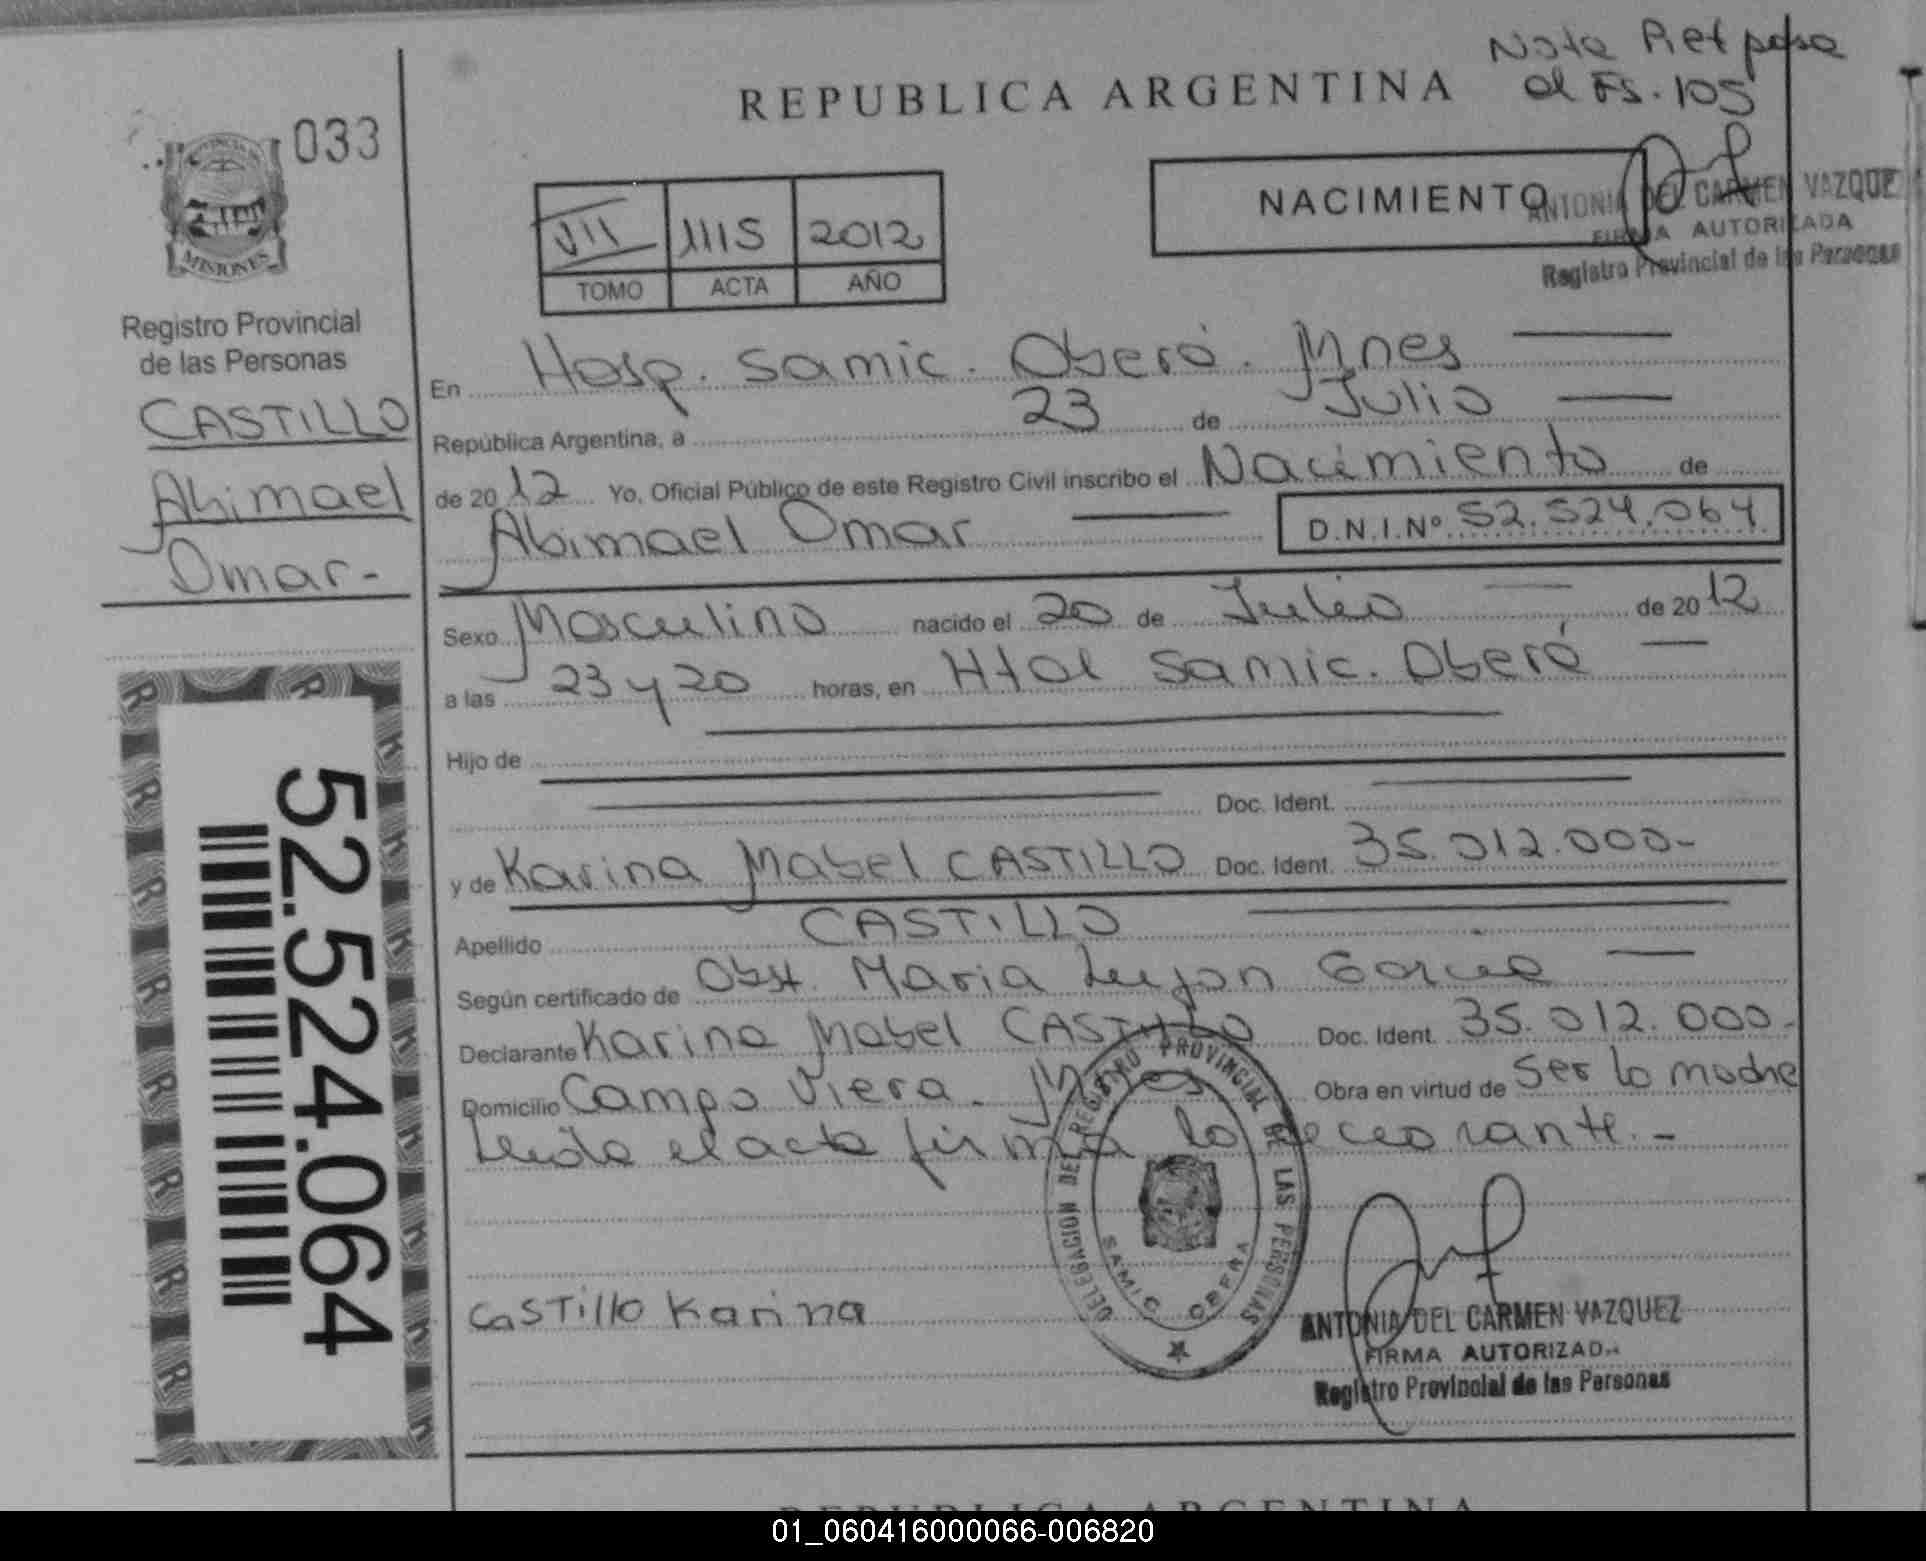 Nota Ref pasa
al Fs. 105
REPUBLICA ARGENTINA
033
MISIONES
Registro Provincial
de las Personas
CASTILLO
Abimael
Omar-
VII 1115 2012
TOMO ACTA AÑO
NACIMIENTO
ANTONIA DEL CARMEN VAZQUEZ
FIRMA AUTORIZADA
Registro Provincial de las Personas
En Hosp. Samic. Oberá. Mnes
República Argentina, a 23 de Julio
de 2012 Yo, Oficial Público de este Registro Civil inscribo el Nacimiento de
Abimael Omar D.N.I.Nº 52.524.064
Sexo Masculino nacido el 20 de Julio de 2012
a las 23 y 20 horas, en Htal Samic. Oberá
Hijo de
Doc. Ident.
y de Karina Mabel CASTILLO Doc. Ident. 35.012.000-
Apellido CASTILLO
Según certificado de Obst. Maria Lujan Garcia
Declarante Karina Mabel CASTILLO Doc. Ident. 35.012.000-
Domicilio Campo Viera. Mnes Obra en virtud de Ser la madre
Leida el acta firma la declarante.-
52.524.064
DELEGACION DEL REGISTRO PROVINCIAL DE LAS PERSONAS
SAMIC OBERA
Castillo Karina
ANTONIA DEL CARMEN VAZQUEZ
FIRMA AUTORIZADA
Registro Provincial de las Personas
01_060416000066-006820